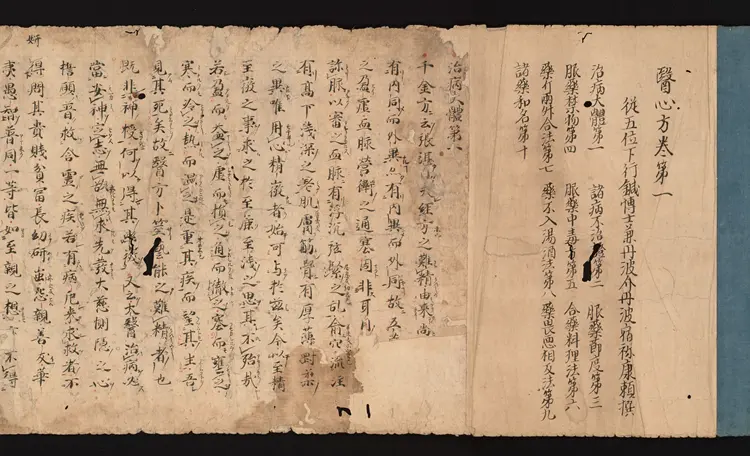 醫心方卷第一
從五位下行鍼博士兼丹波介丹波宿祢康頼撰
治病大體第一 諸病不治第二 服藥節度第三
服藥禁物第四 服藥中毒方第五 合藥料理法第六
藥斤兩升合法第七 藥不入湯酒法第八 藥畏惡相反法第九
諸藥和名第十
治病大體第一
千金方云張湛曰夫經方之難精由来尚
有内同而外異亦有内異而外同故五
之盈虚血脉營衛之通塞固非耳目
診脉以審之血脉有浮沉弦緊之乱俞穴流注
有高下淺深之差肌膚筋骨有厚薄剛柔
之異唯用心精微者始可与於茲矣今以至精
至微之事求之於至麁至淺之思其不殆哉
若盈而益之虚而損之通而徹之塞而壅之
寒而冷之熱而温之是重其疾而望其生吾
見其死矣故醫方卜筮藝能之難精者也
既非神授何以得其幽微 又云大醫治病必
當安神定志無欲無求先發大慈惻隠之心
擔願普救含靈之疾若有病厄来求救者不
妍
得問其貴賤貧富長幼妍蚩怨親善友華
夷愚智普同一等皆如至親之想亦不得